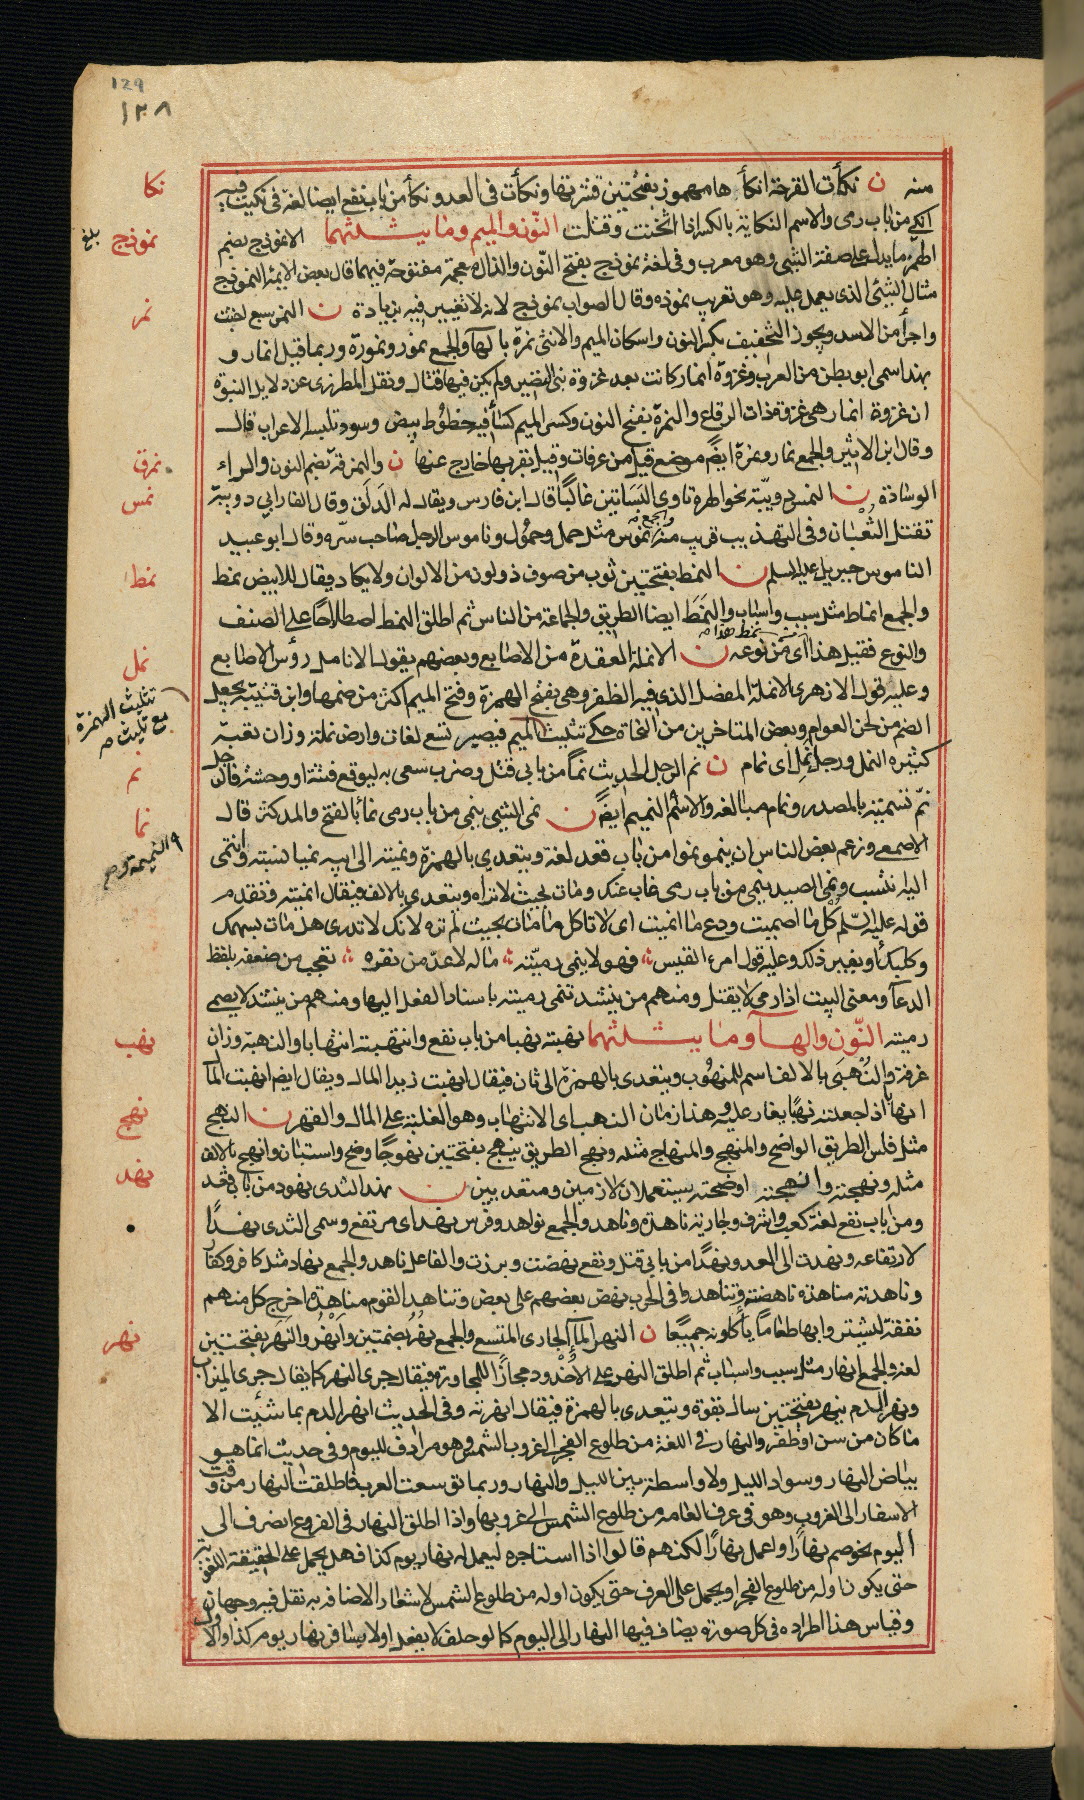 129
١٢٨
منه ن نكأت القرحة انكأها مهموز بفتحتين قشرتها ونكأت في العدو نكأ من باب نفع ايضا لغة في نكيت فيه
انكى من باب رمى والاسم النكاية بالكسر اذا اثخنت وقتلت النّون والميم وما يثلثهما الانموذج بضم
الهمزة ما يدل على صفة الشئ وهو معرب وفي لغة نموذج بفتح النّون والذال معجمة مفتوحة فيهما قال بعض الائمة النموذج
مثال الشئ الذي يعمل عليه وهو تعريب نموذه وقال الصواب نموذج لانه لا تغيير فيه بزيادة ن النمر سبع اخبث
واجرأ من الاسد ويجوز التخفيف بكسر النون واسكان الميم والانثى نمرة بالهآ والجمع نمور ونمورة وربما قيل انمار و
بهذا سمى ابو بطن من العرب وغزوة انمار كانت بعد غزوة بنى النضير ولم يكن فيها قتال ونقل المطرزى عن دلايل النبوة
ان غزوة انمار هى غزوة ذات الرقاع والنمرة بفتح النون وكسر الميم كسأ فيه خطوط بيض وسود تلبسه الاعراب قالـ
وقال ابن الاثير والجمع نمار ونمرة ايضً موضع قيل من عرفات وقيل بقربها خارج عنها ن والنمرقة بضم النون والراء
الوسادة ن النمس دويبّة نحو الهرة تاوى البساتين غالبًا قال ابن فارس ويقال له الدلق وقال الفارابي دويبة
تقتل الثعبان وفي التهذيب قريب منه والجمع نموس مثل حمل وحمول وناموس الرجل صاحب سرّه وقال ابو عبيد
الناموس جبريل عليه السلم ن النمط بفتحتين ثوب من صوف ذو لون من الالوان ولا يكاد يقال للابيض نمط
والجمع انماط مثل سبب واسباب والنمط ايضا الطريق والجماعة من الناس ثم اطلق النمط اصطلاحًا على الصنف
والنوع فقيل هذا من نمط هذا اى من نوعه ن الانملة العقدة من الاصابع وبعضهم يقول الانامل رؤس الاصابع
وعليه قول الازهرى الانملة المفصل الذى فيه الظفر وهى بفتح الهمزة وفتح الميم اكثر من ضمها وابن قتيبة يجعل
الضم من لحن العوام وبعض المتاخرين من النحاة حكى تثليث الميم فيصير تسع لغات وارض نملة وزان تعبة
كثيرة النمل ورجل نمل اى نمام ن نم الرجل الحديث نمًّا من بابي قتل وضرب سعى به ليوقع فتنة او وحشة فالرجل
نمّ تسمية بالمصدر ونمام مبالغة والاسم النميم ايضً ن نمى الشئ ينمى من باب رمى نمآ بالفتح والمد كثر قال
الاصمعى وزعم بعض الناس ان ينمو نموا من باب قعد لغة ويتعدى بالهمزة ونميته الى ابيه نميا نسبته وانتمى
اليه انتسب ونمى الصيد ينمى من باب رمى غاب عنك ومات بحيث لا تراه ويتعدى بالالف فيقال انميته وتقدم
قوله عليه السّلم كل ما اصميت ودع ما انميت اى لا تاكل ما مات بحيث لم تره لانك لا تدرى هل مات بسهمك
وكلبك أو بغير ذلك وعليه قول امرء القيس فهو لا ينمى رميّته ماله لا عدّ من نفره تعجب من ضعفه بلفظ
الدعآ ومعنى البيت اذا رمى لا يقتل ومنهم من ينشد تنمى رميته باسناد الفعل اليها ومنهم من ينشد لا يصمى
رميته النّون والهآ وما يثلثهما نهبته نهبا من باب نفع وانتهبته انتهابا والنهبة وزان
غرفة والنهبى بالالف اسم للمنهوب ويتعدى بالهمزة الى ثان فيقال انهبت زيدا المال ويقال ايضً انهبت المال
انهابا اذا جعلته نهبًا يغار عليه وهذا زمان النهب اى الانتهاب وهو الغلبة على المال والقهر ن النهج
مثل فلس الطريق الواضح والمنهج والمنهاج مثله ونهج الطريق ينهج بفتحتين نهوجًا وضح واستبان وانهج بالالف
مثله ونهجته وانهجته اوضحته يستعملان لازمين ومتعديين ن نهد الثدى نهودا من باب قعد
ومن باب نفع لغة كعب واشرف وجارية ناهدة وناهد والجمع نواهد وفرس نهد اى مرتفع وسمى الثدى نهدًا
لارتفاعه ونهدت الى العدو نهدًا من بابي قتل ونفع نهضت وبرزت والفاعل ناهد والجمع نهاد مثل كافر وكفار
وناهدته مناهدة ناهضته وتناهدوا في الحرب نهض بعضهم على بعض وتناهد القوم مناهدة اخرج كل منهم
نفقة ليشتروا بها طعامًا ياكلونه جميعًا ن النهر المآ الجارى المتسع والجمع نهر بضمتين وانهر والنهر بفتحتين
لغة والجمع انهار مثل سبب واسباب ثم اطلق النهر على الاخدود مجازًا للمجاورة فيقال جرى النهر كما يقال جرى الميزاب
ونهر الدم ينهر بفتحتين سال بقوة ويتعدى بالهمزة فيقال انهرته وفي الحديث انهر الدم بما شئت الا
ما كان من سن او ظفر والنهار في اللغة من طلوع الفجر الى غروب الشمس وهو مرادف لليوم وفي حديث انما هو
بياض النهار وسواد الليل ولا واسطة بين الليل والنهار وربما توسعت العرب فاطلقت النهار من وقت
الاسفار الى الغروب وهو في عرف العامه من طلوع الشمس الى غروبها واذا اطلق النهار في الفروع انصرف الى
اليوم نحو صم نهارًا واعمل نهارًا لكنهم قالوا اذا استاجره ليعمل له نهار يوم كذا فهل يحمل على الحقيقة اللغوية
حتى يكون اوله من طلوع الفجر او يحمل على العرف حتى يكون اوله من طلوع الشمس لاشعار الاضافة به نقل فيه وجهان
وقياس هذا اطراده في كل صورة يضاف فيها النهار الى اليوم كما لو حلف لا يفعل او لا يسافر نهار يوم كذا والاول
نكا
نموذج
بلغ
نمر
نمرق
نمس
نمط
نمل
تثليث الهمزة
مع تثليث
نم
نما
والنميمة
نهب
نهج
نهد
نهر